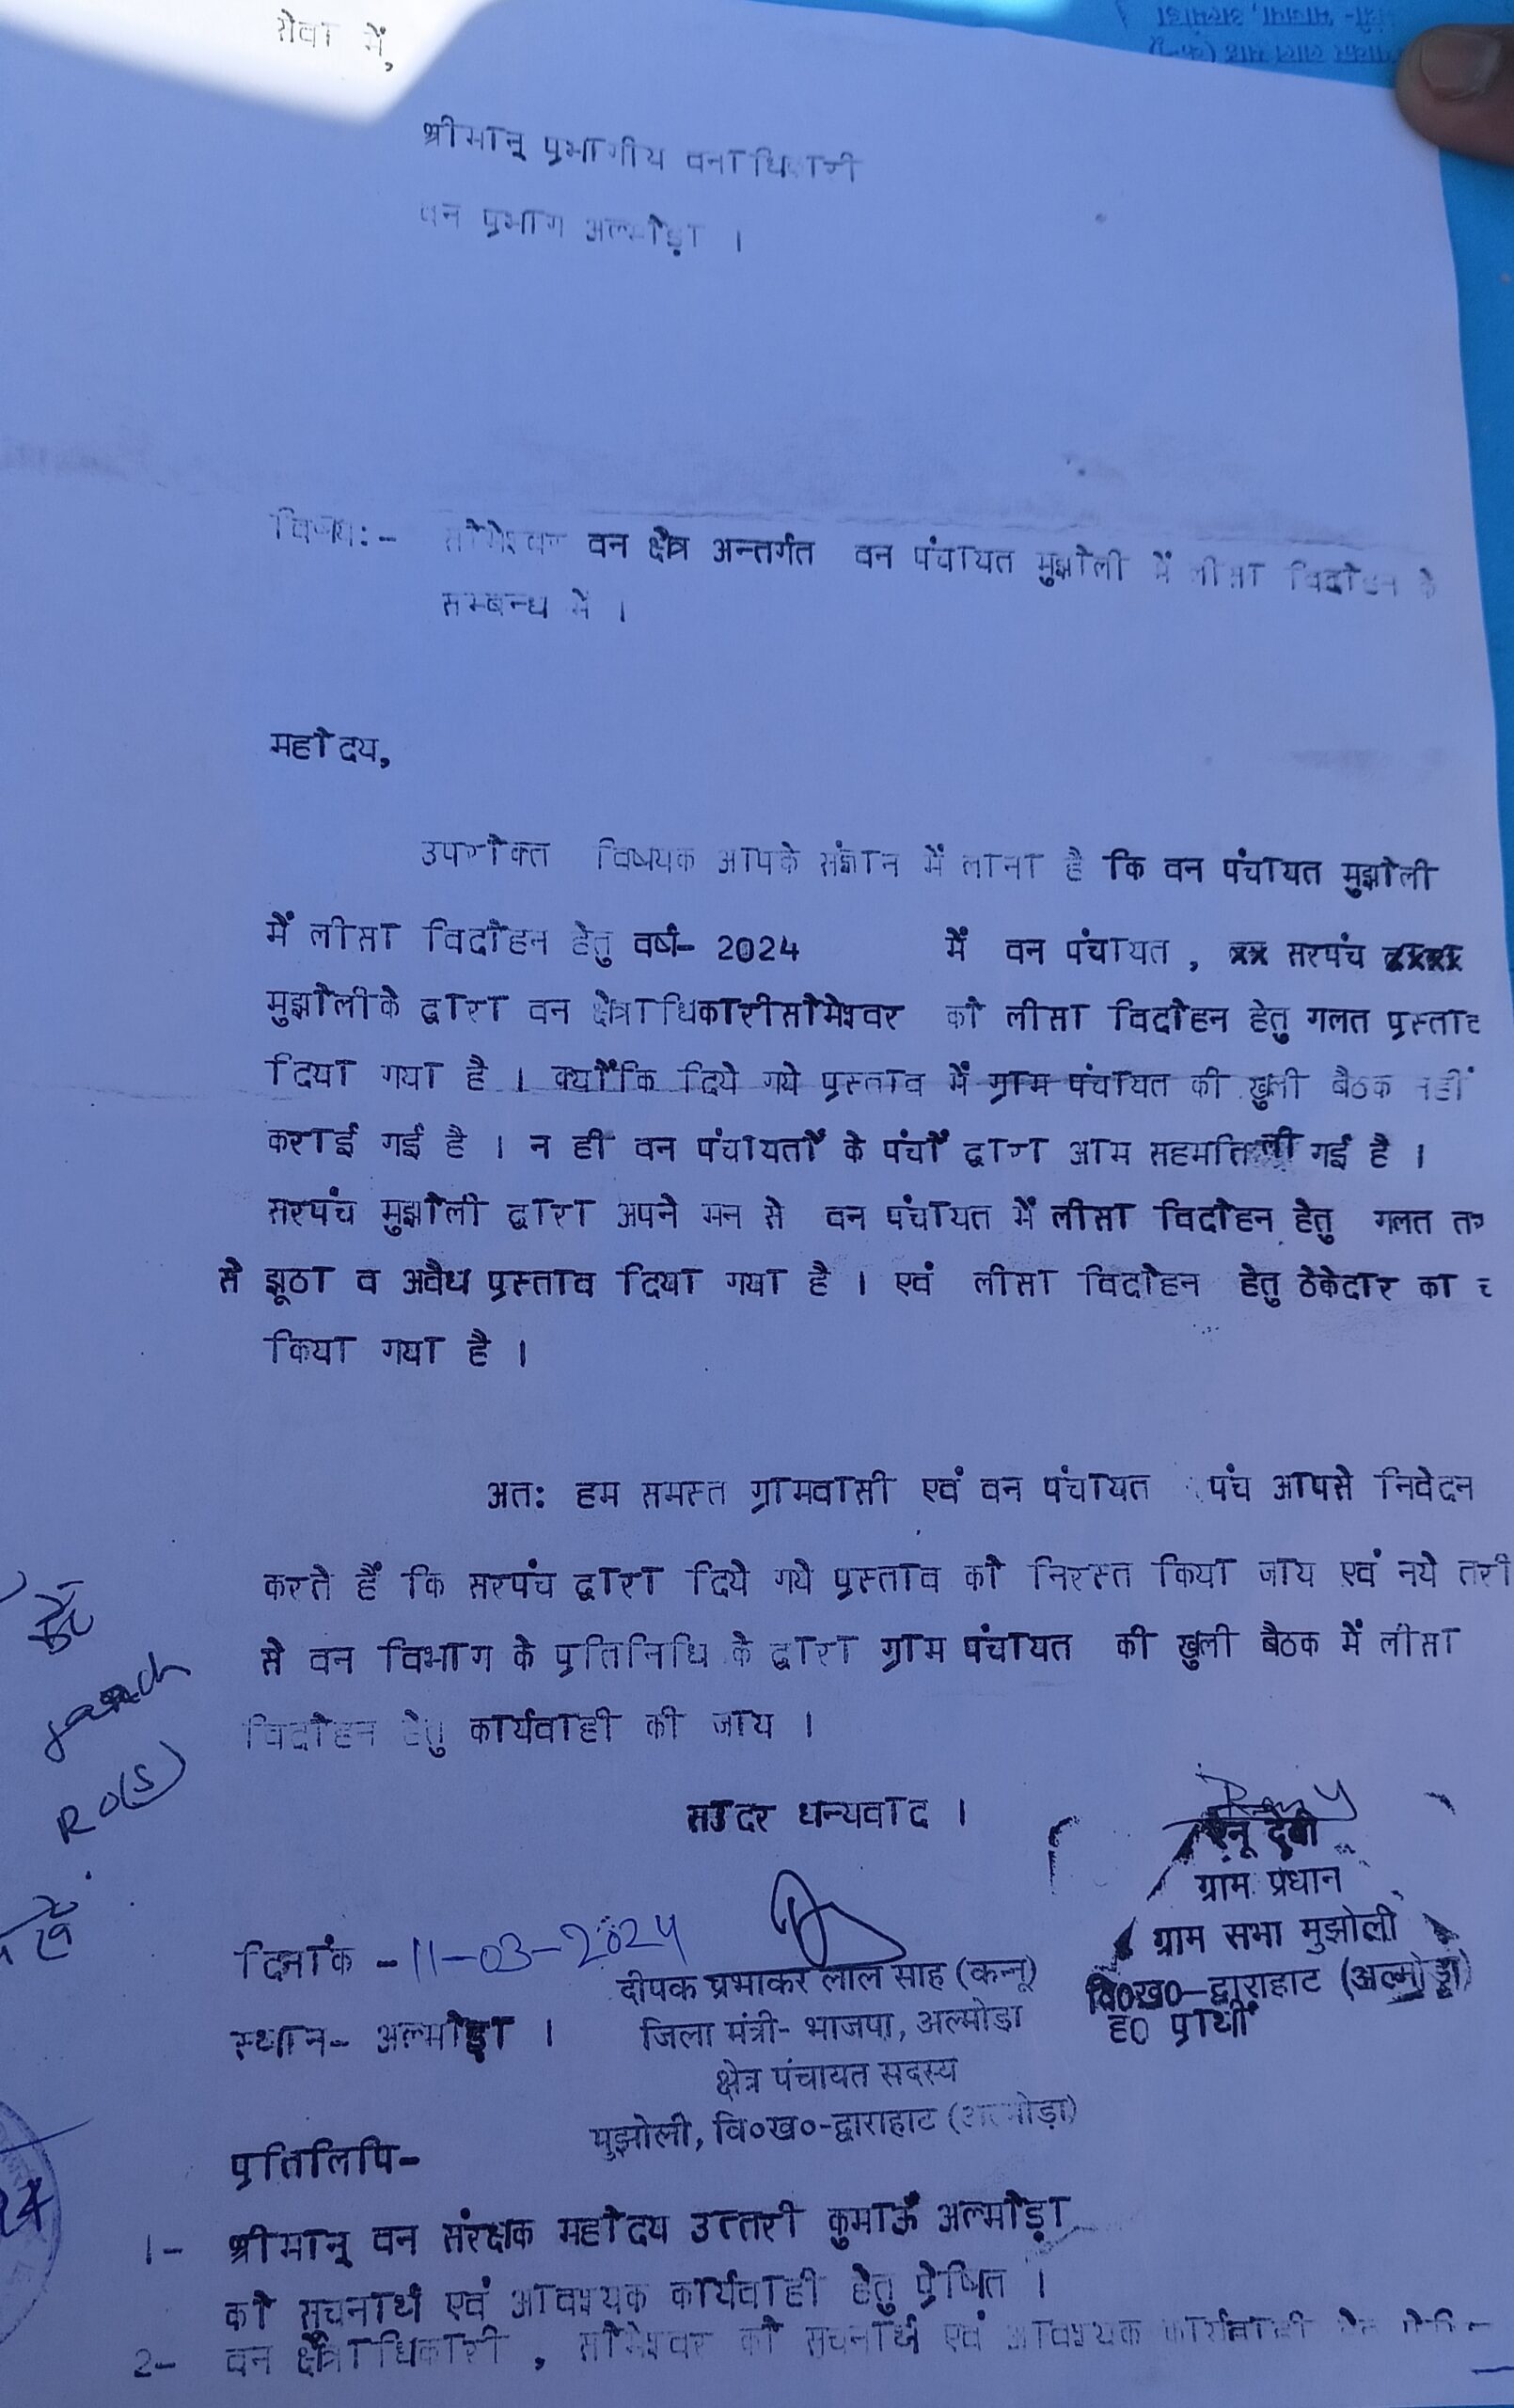 सेवा में,
श्रीमान् प्रभागीय वनाधिकारी
वन प्रभाग अल्मोड़ा ।
विषय:- सोमेश्वर वन क्षेत्र अन्तर्गत वन पंचायत मुझोली में लीसा विदोहन के
सम्बन्ध में ।
महोदय,
उपरोक्त विषयक आपके संज्ञान में लाना है कि वन पंचायत मुझोली
में लीसा विदोहन हेतु वर्ष- 2024 में वन पंचायत, xx सरपंच xxxx
मुझोलीके द्वारा वन क्षेत्राधिकारीसोमेश्वर को लीसा विदोहन हेतु गलत प्रस्ताव
दिया गया है । क्योंकि दिये गये प्रस्ताव में ग्राम पंचायत की खुली बैठक नहीं
कराई गई है । न ही वन पंचायतों के पंचों द्वारा आम सहमति ली गई है ।
सरपंच मुझोली द्वारा अपने मन से वन पंचायत में लीसा विदोहन हेतु गलत
से झूठा व अवैध प्रस्ताव दिया गया है । एवं लीसा विदोहन हेतु ठेकेदार का
किया गया है ।
अत: हम समस्त ग्रामवासी एवं वन पंचायत पंच आपसे निवेदन
करते हैं कि सरपंच द्वारा दिये गये प्रस्ताव को निरस्त किया जाय एवं नये तरी
से वन विभाग के प्रतिनिधि के द्वारा ग्राम पंचायत की खुली बैठक में लीसा
विदोहन हेतु कार्यवाही की जाय ।
RO(S)
सादर धन्यवाद ।
रेनू देवी
ग्राम प्रधान
ग्राम सभा मुझोली
वि०ख०-द्वाराहाट (अल्मोड़ा)
ह0 प्रार्थी
दिनांक -11-03-2024
स्थान- अल्मोड़ा ।
दीपक प्रभाकर लाल साह (कन्नू)
जिला मंत्री- भाजपा, अल्मोड़ा
क्षेत्र पंचायत सदस्य
मुझोली, वि०ख०-द्वाराहाट (अल्मोड़ा)
प्रतिलिपि-
1- श्रीमान् वन संरक्षक महोदय उत्तरी कुमाऊँ अल्मोड़ा
को सूचनार्थ एवं आवश्यक कार्यवाही हेतु प्रेषित ।
2- वन क्षेत्राधिकारी, सोमेश्वर को सूचनार्थ एवं आवश्यक कार्यवाही हेतु